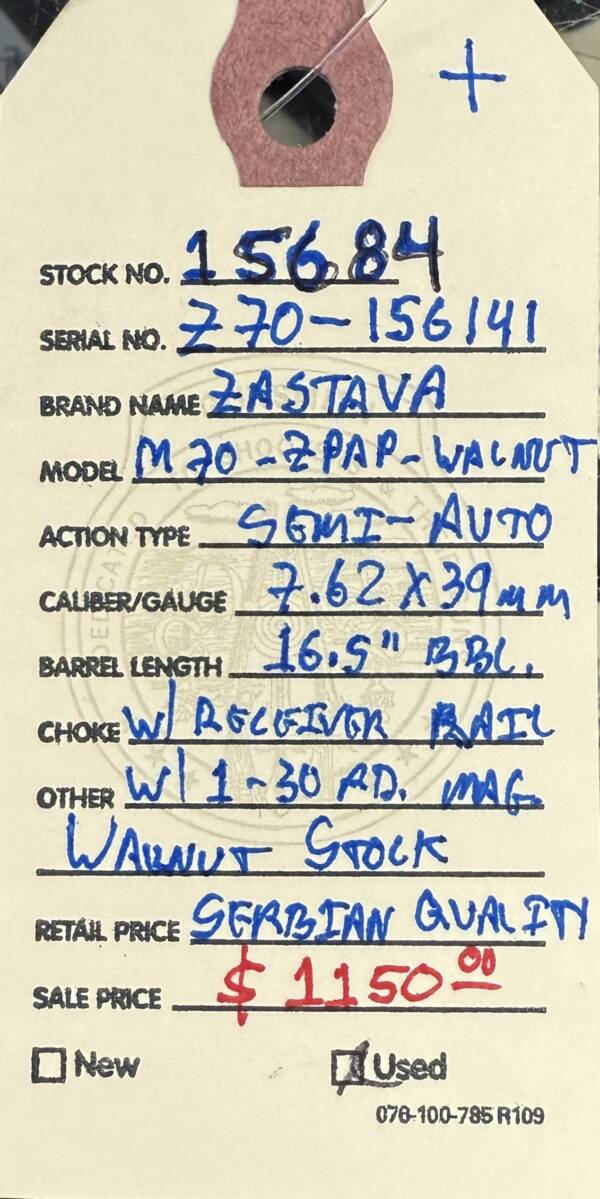 +
STOCK NO. 15684
SERIAL NO. Z70-156141
BRAND NAME ZASTAVA
MODEL M70-ZPAP-WALNUT
ACTION TYPE SEMI-AUTO
CALIBER/GAUGE 7.62X39mm
BARREL LENGTH 16.5" BBL.
CHOKE W/ RECEIVER RAIL
OTHER W/ 1-30 RD. MAG.
WALNUT STOCK
RETAIL PRICE SERBIAN QUALITY
SALE PRICE $1150.00
New Used
076-100-785 R109